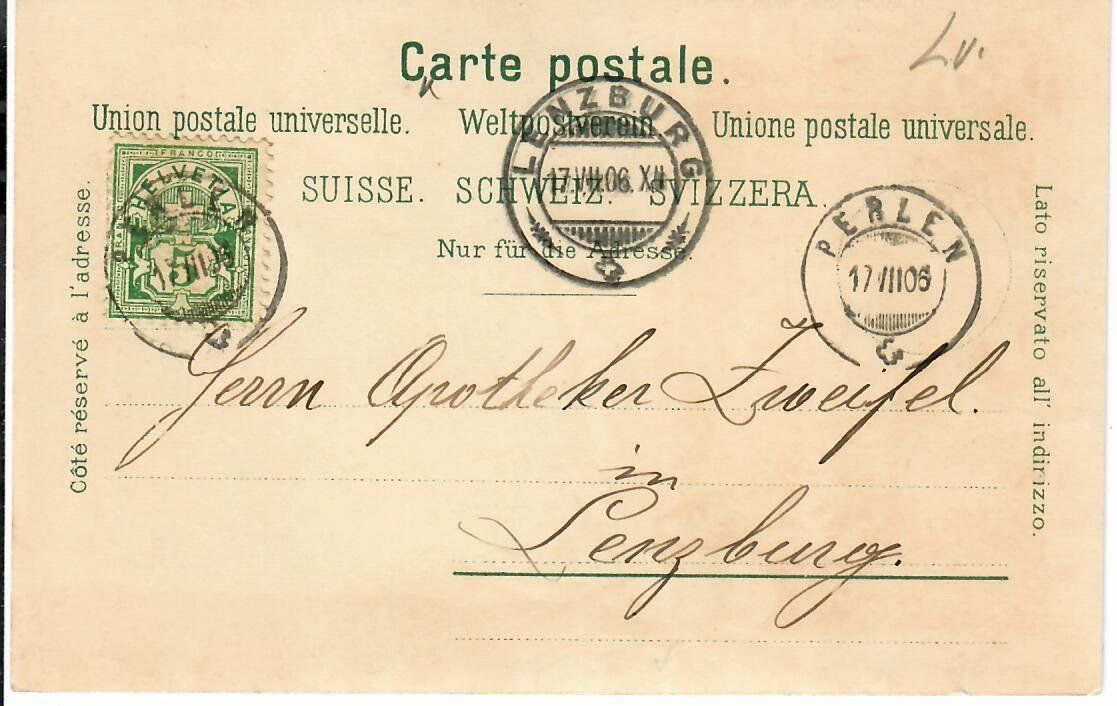 Carte postale.
Union postale universelle. Weltpostverein. Unione postale universale.
SUISSE. SCHWEIZ. SVIZZERA.
Nur für die Adresse.
Côté réservé à l'adresse.
Lato riservato all' indirizzo.
FRANCO
HELVETIA
5
LENZBURG
17.VII.06. XII
PERLEN
17 VII 06
Herrn Apotheker Zweifel.
in
Lenzburg.